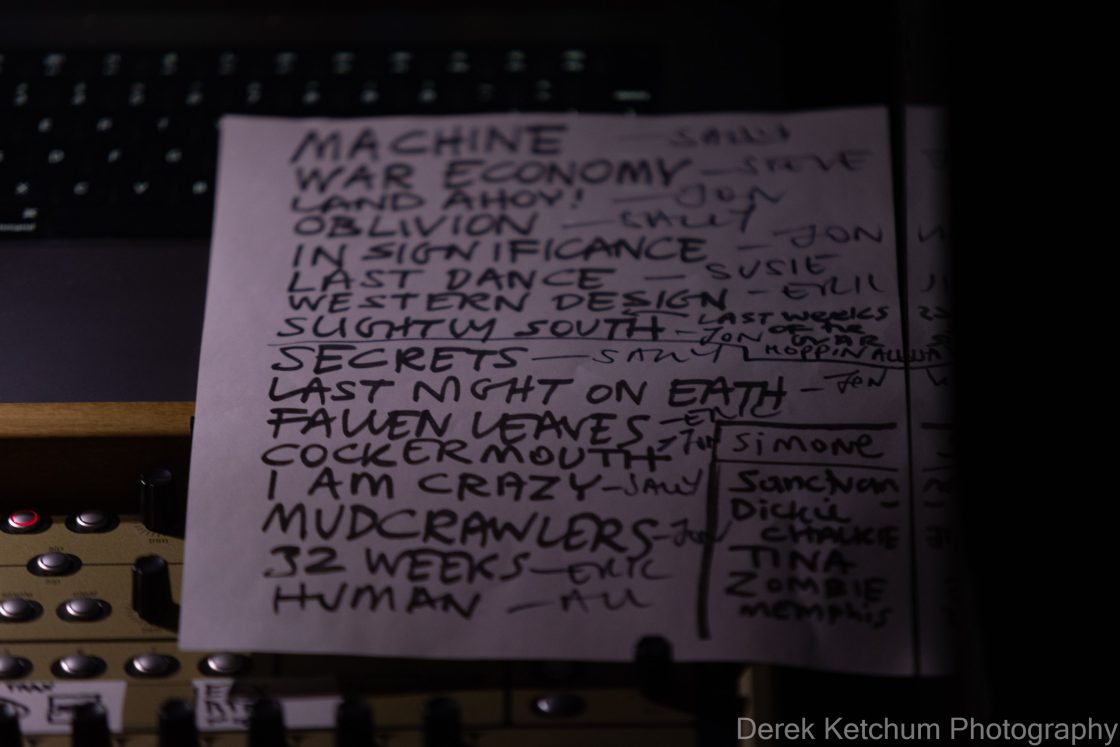 MACHINE — SALLY
WAR ECONOMY — STEVE
LAND AHOY! — JON
OBLIVION — SALLY
IN SIGNIFICANCE — JON
LAST DANCE — SUSIE
WESTERN DESIGN - ERIC
SLIGHTLY SOUTH - JON LAST WEEKS OF THE WAR
SECRETS — SALLY HOPPIN
LAST NIGHT ON EATH - JON
FALLEN LEAVES - ERIC
COCKERMOUTH - JON
I AM CRAZY - SALLY
MUDCRAWLERS - JON
32 WEEKS - ERIC
HUMAN - ALL
SIMONE
Dickie
CHALKIE
TINA
ZOMBIE
MEMPHIS
Derek Ketchum Photography